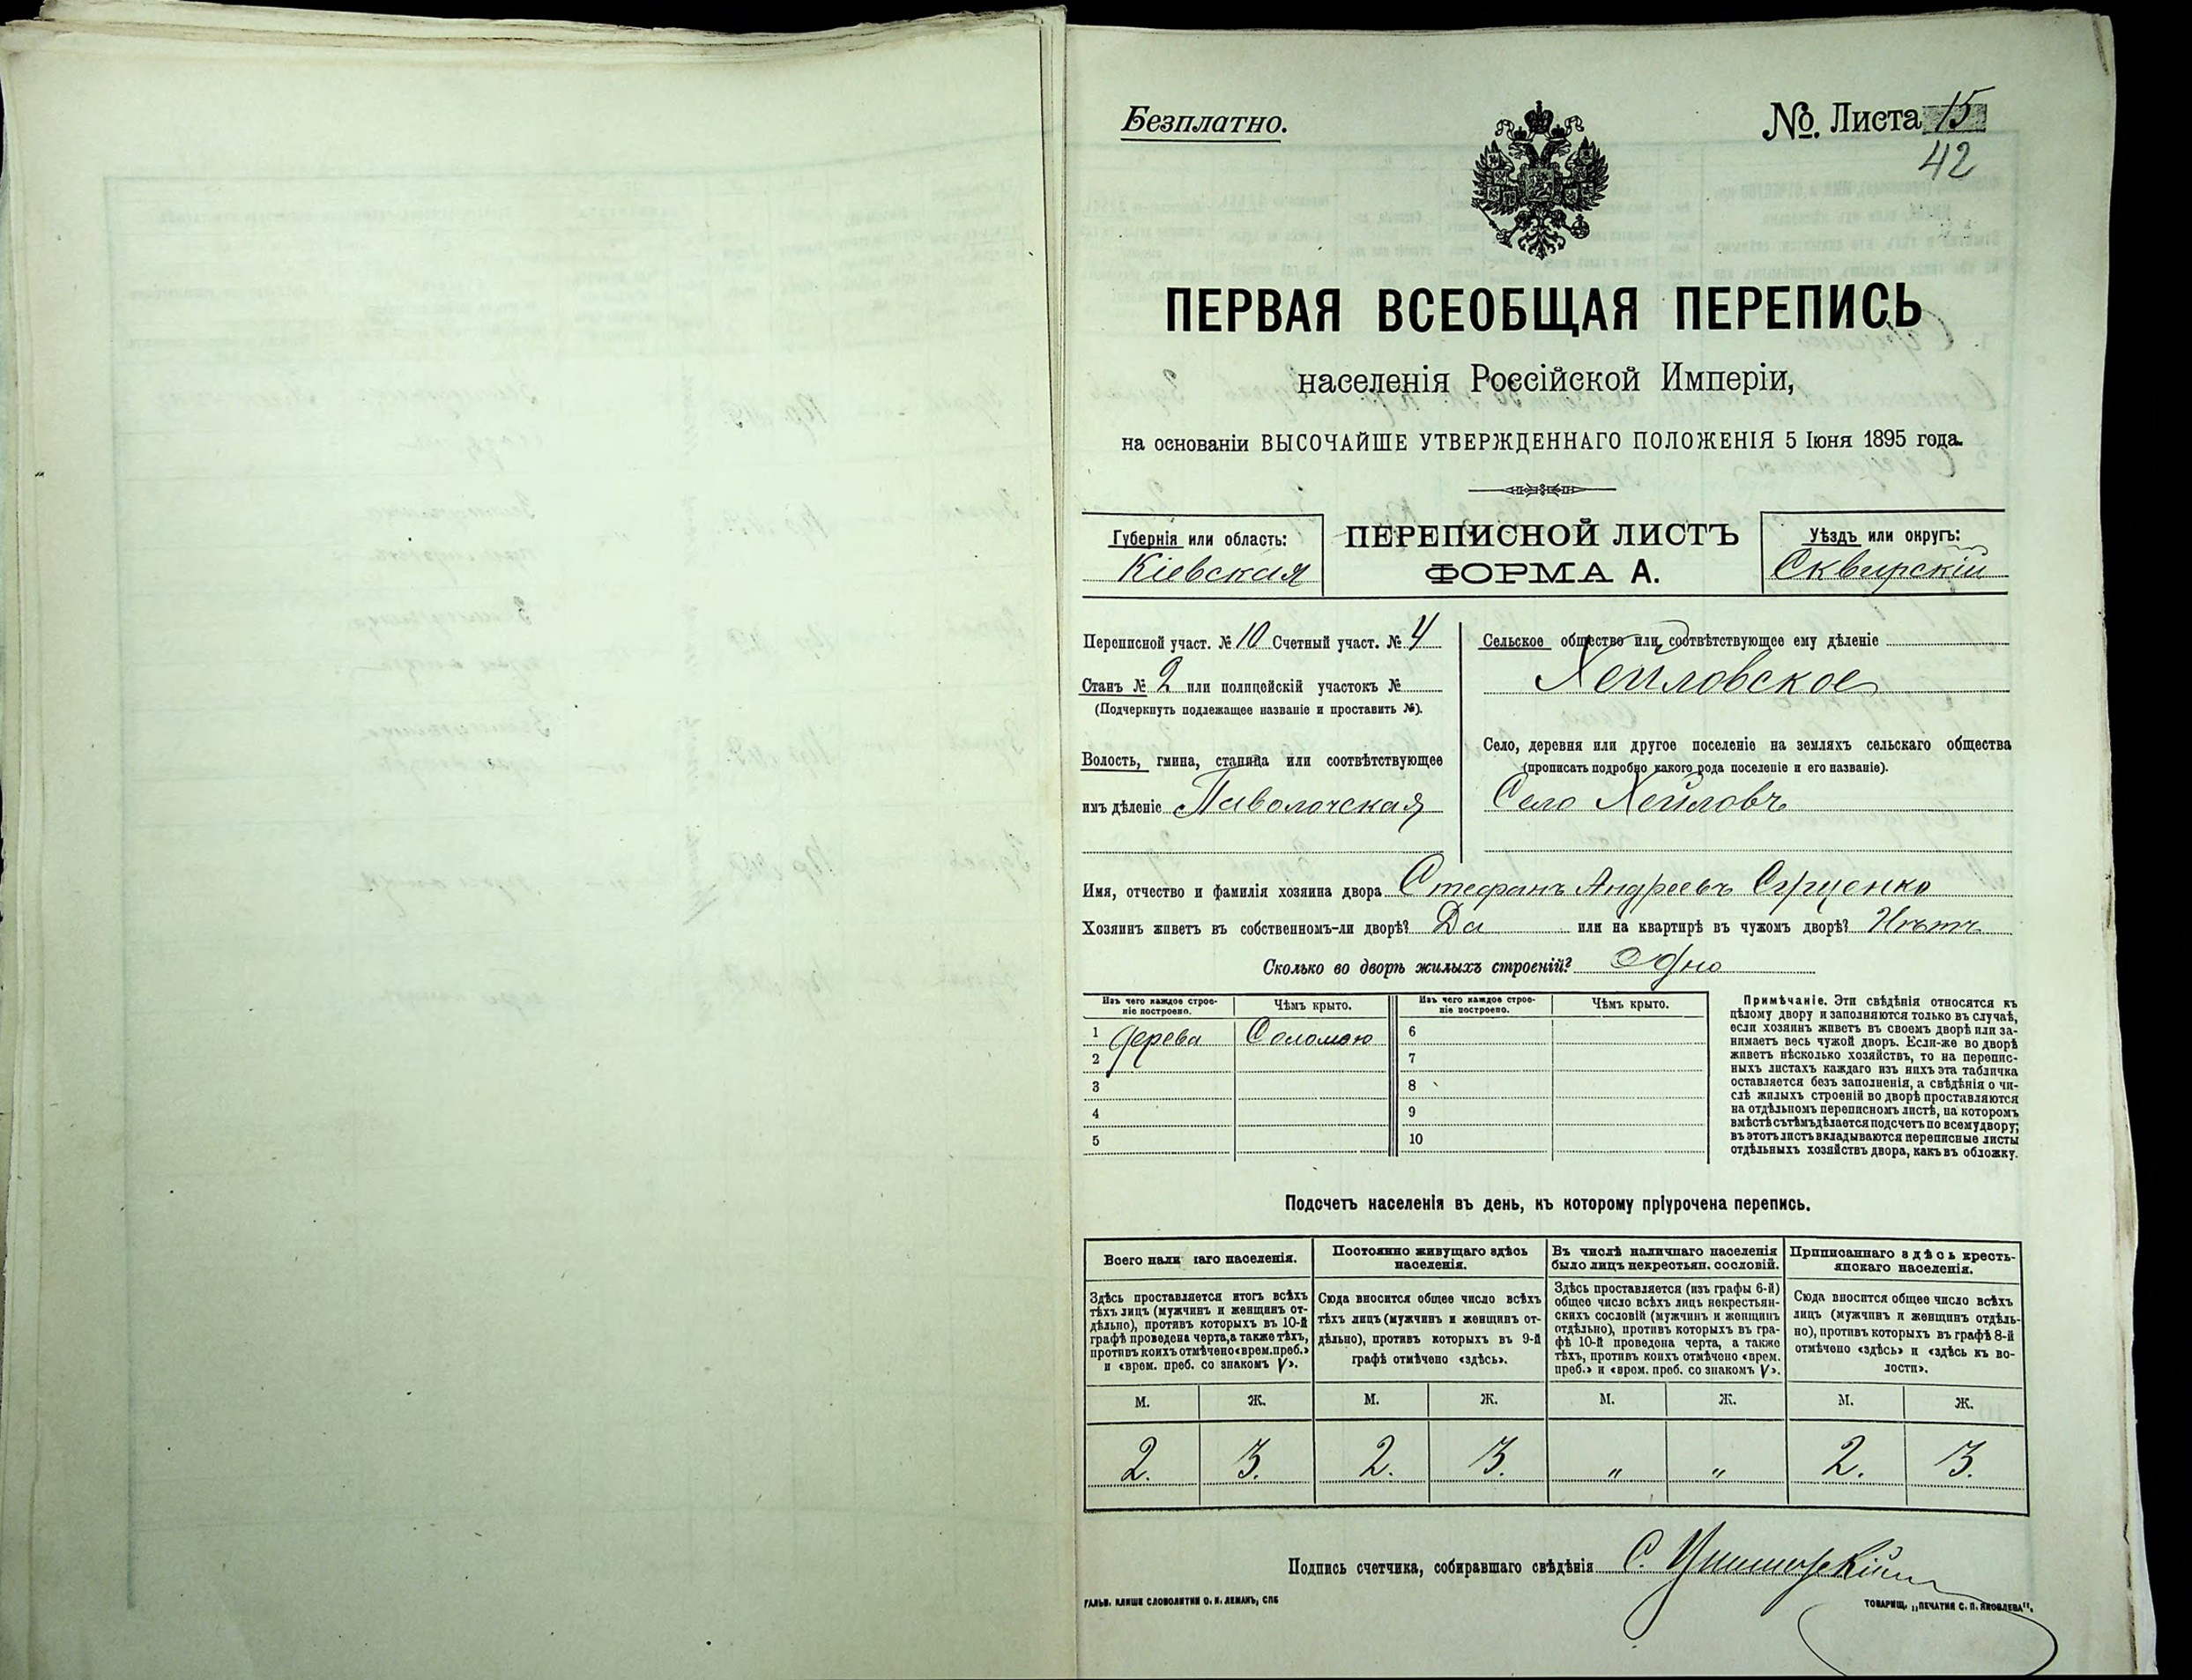 Безплатно.
№. Листа 15
42
ПЕРВАЯ ВСЕОБЩАЯ ПЕРЕПИСЬ
населенія Россійской Имперіи,
на основаніи ВЫСОЧАЙШЕ УТВЕРЖДЕННАГО ПОЛОЖЕНІЯ 5 Іюня 1895 года.
Губернія или область:
Кіевская
ПЕРЕПИСНОЙ ЛИСТЪ
ФОРМА А.
Уѣздъ или округъ:
Сквирскій
Переписной участ. № 10 Счетный участ. № 4
Станъ № 2 или полицейскій участокъ №
(Подчеркнуть подлежащее названіе и проставить №).
Волость, гмина, станица или соотвѣтствующее
имъ дѣленіе Паволочская
Сельское общество или соотвѣтствующее ему дѣленіе
Хейловское
Село, деревня или другое поселеніе на земляхъ сельскаго общества
(прописать подробно какого рода поселеніе и его названіе).
Село Хейловъ
Имя, отчество и фамилія хозяина двора Стефанъ Андреевъ Сущенко
Хозяинъ живетъ въ собственномъ-ли дворѣ? Да или на квартирѣ въ чужомъ дворѣ? Нѣтъ
Сколько во дворѣ жилыхъ строеній? Одно
Изъ чего каждое строе-
ніе построено.
Чѣмъ крыто.
1 дерева Соломою
2
3
4
5
Изъ чего каждое строе-
ніе построено.
Чѣмъ крыто.
6
7
8
9
10
Примѣчаніе. Эти свѣдѣнія относятся къ
цѣлому двору и заполняются только въ случаѣ,
если хозяинъ живетъ въ своемъ дворѣ или за-
нимаетъ весь чужой дворъ. Если-же во дворѣ
живетъ нѣсколько хозяйствъ, то на перепис-
ныхъ листахъ каждаго изъ нихъ эта табличка
оставляется безъ заполненія, а свѣдѣнія о чи-
слѣ жилыхъ строеній во дворѣ проставляются
на отдѣльномъ переписномъ листѣ, на которомъ
вмѣстѣ съ тѣмъ дѣлается подсчетъ по всему двору;
въ этотъ листъ вкладываются переписные листы
отдѣльныхъ хозяйствъ двора, какъ въ обложку.
Подсчетъ населенія въ день, къ которому пріурочена перепись.
Всего нали чаго населенія.
Здѣсь проставляется итогъ всѣхъ
тѣхъ лицъ (мужчинъ и женщинъ от-
дѣльно), противъ которыхъ въ 10-й
графѣ проведена черта, а также тѣхъ,
противъ коихъ отмѣчено «врем. преб.»
и «врем. преб. со знакомъ V».
М. Ж.
2. 3.
Постоянно живущаго здѣсь
населенія.
Сюда вносится общее число всѣхъ
тѣхъ лицъ (мужчинъ и женщинъ от-
дѣльно), противъ которыхъ въ 9-й
графѣ отмѣчено «здѣсь».
М. Ж.
2. 3.
Въ числѣ наличнаго населенія
было лицъ некрестьян. сословій.
Здѣсь проставляется (изъ графы 6-й)
общее число всѣхъ лицъ некрестьян-
скихъ сословій (мужчинъ и женщинъ
отдѣльно), противъ которыхъ въ гра-
фѣ 10-й проведена черта, а также
тѣхъ, противъ коихъ отмѣчено «врем.
преб.» и «врем. преб. со знакомъ V».
М. Ж.
" "
Приписаннаго здѣсь кресть-
янскаго населенія.
Сюда вносится общее число всѣхъ
лицъ (мужчинъ и женщинъ отдѣль-
но), противъ которыхъ въ графѣ 8-й
отмѣчено «здѣсь» и «здѣсь къ во-
лости».
М. Ж.
2. 3.
Подпись счетчика, собиравшаго свѣдѣнія С.
ГАЛЬВ. КЛИШЕ СЛОВОЛИТНИ О. И. ЛЕМАНЪ, СПБ
ТОВАРИЩ. „ПЕЧАТНЯ С. П. ЯКОВЛЕВА".